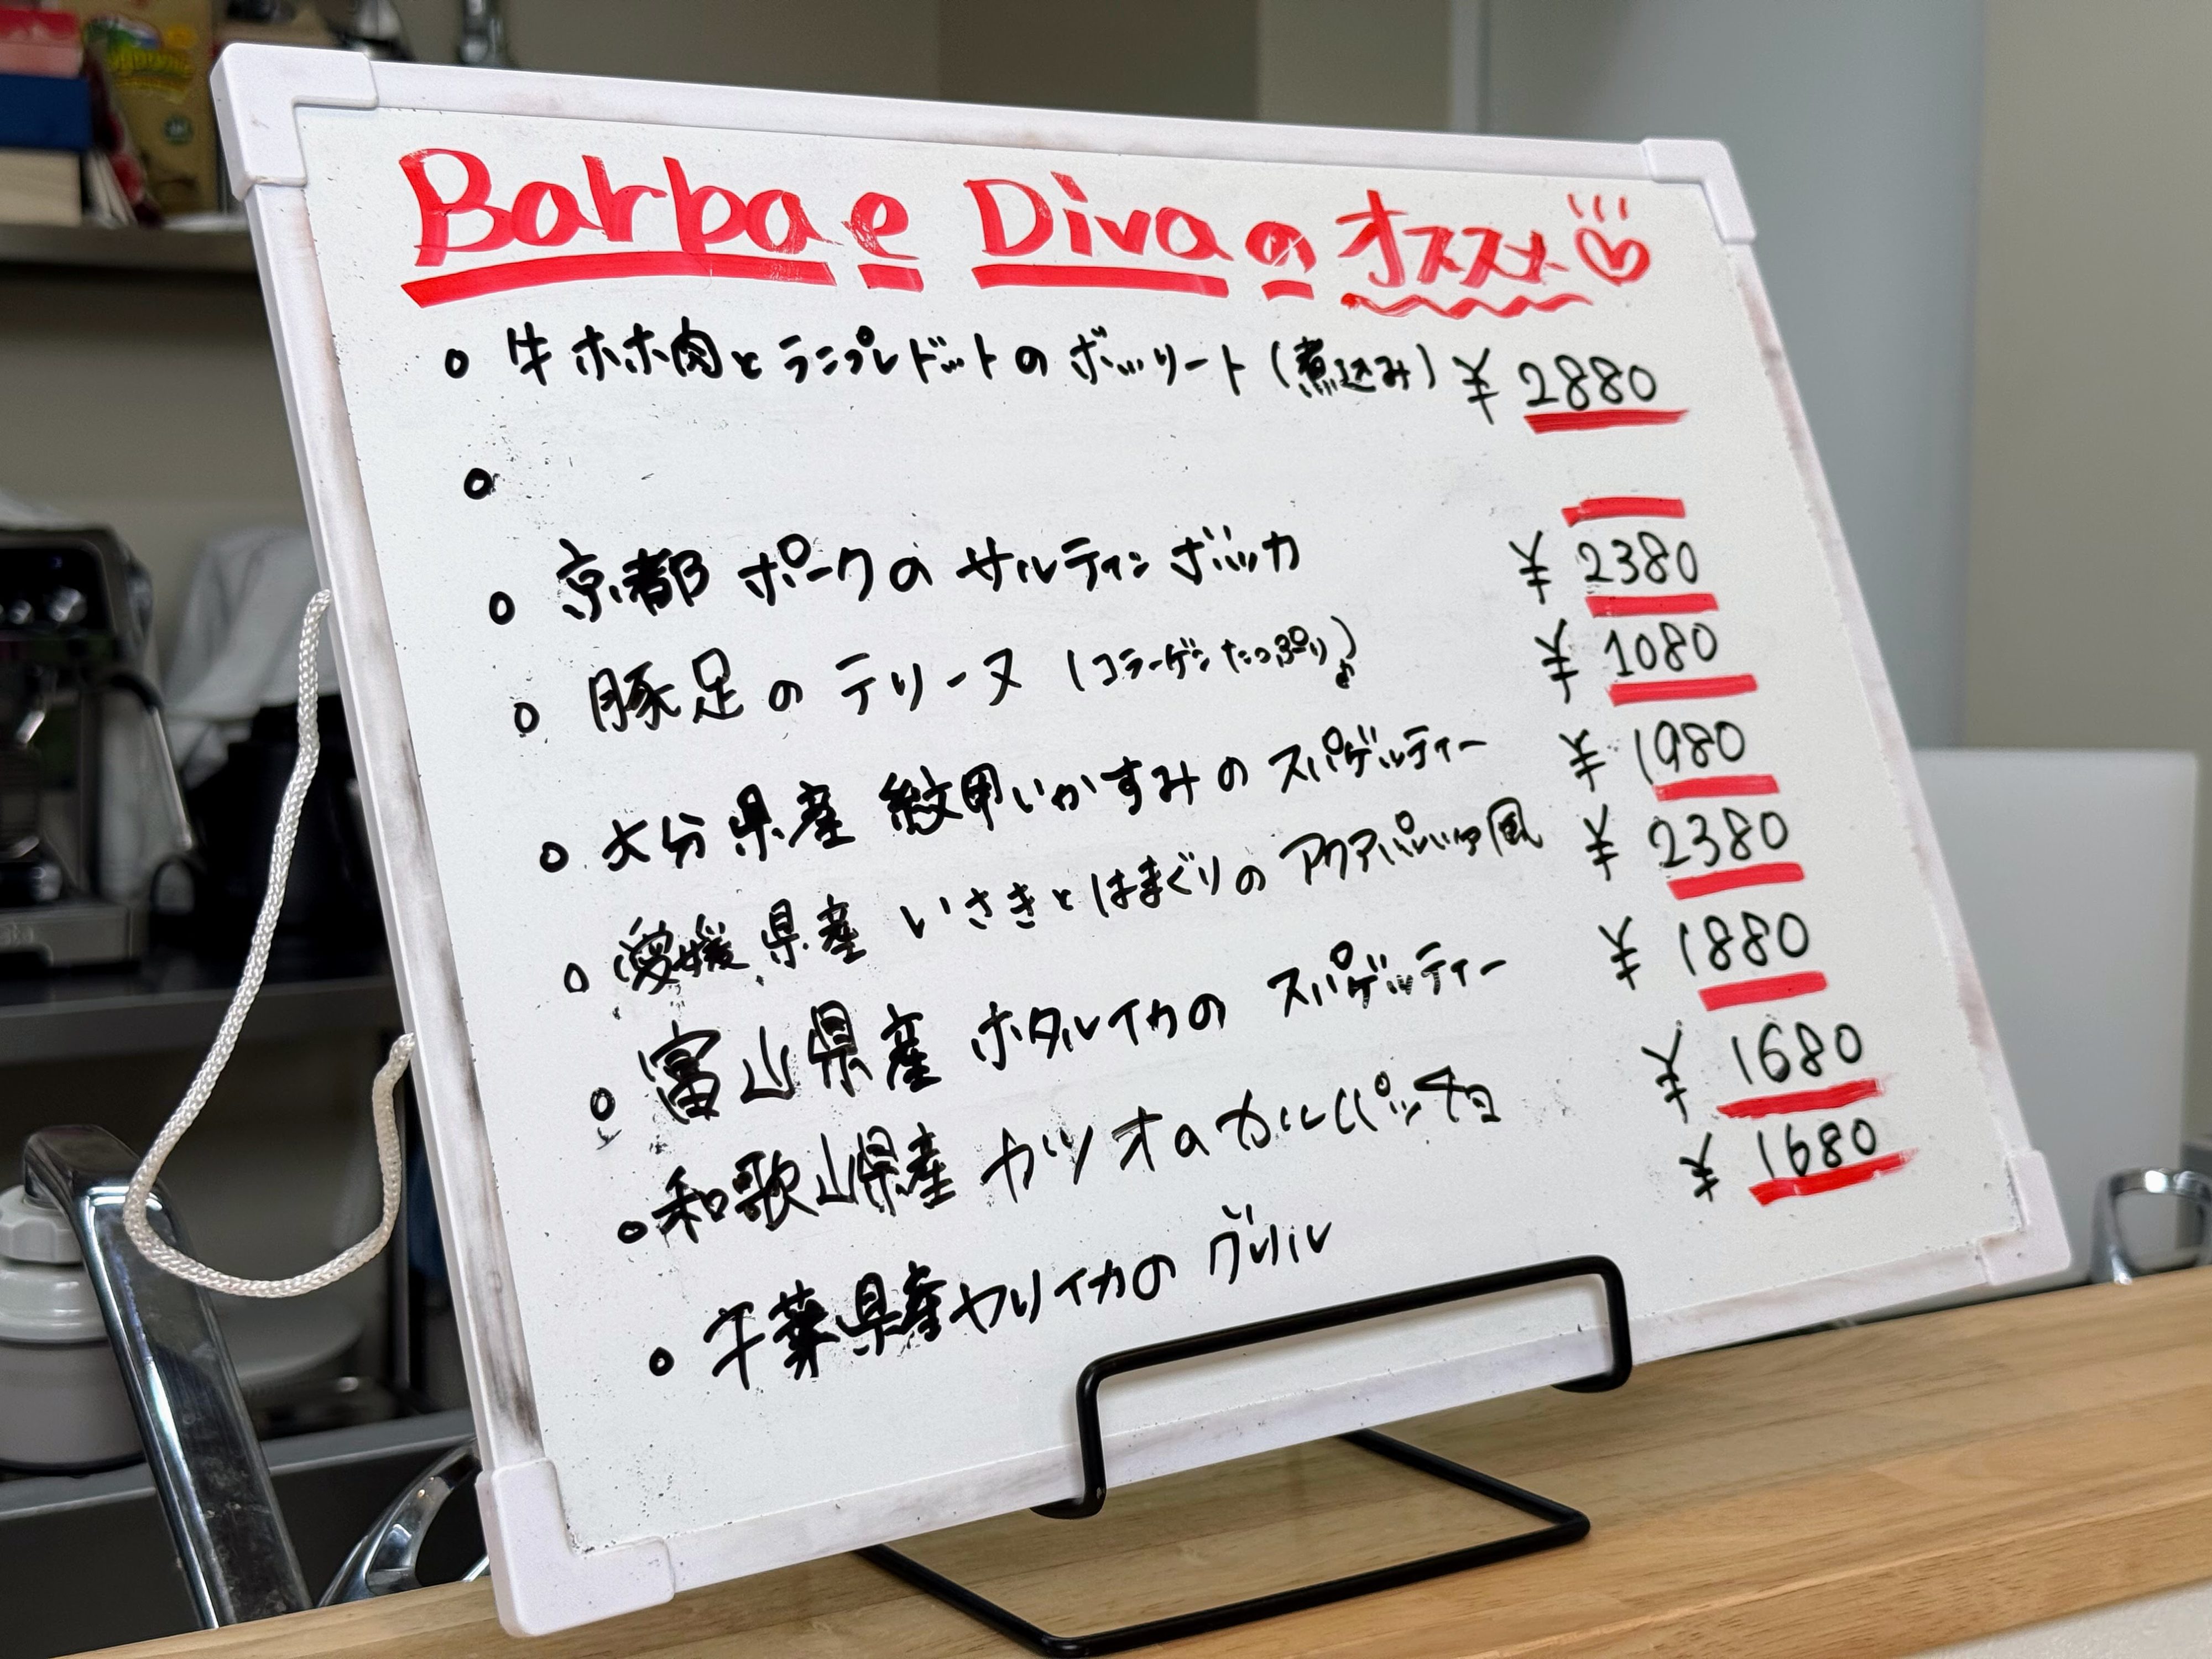 Barba e Divaのオススメ♡
○ 牛ホホ肉とランプレドットのボッリート(煮込み) ¥2880
○
○ 京都ポークのサルティンボッカ ¥2380
○ 豚足のテリーヌ (コラーゲンたっぷり♪) ¥1080
○ 大分県産 紋甲いかすみのスパゲッティー ¥1980
○ 愛媛県産 いさきとはまぐりのアクアパッツァ風 ¥2380
○ 富山県産 ホタルイカの スパゲッティー ¥1880
○ 和歌山県産 カツオのカルパッチョ ¥1680
○ 千葉県産ヤリイカの グリル ¥1680